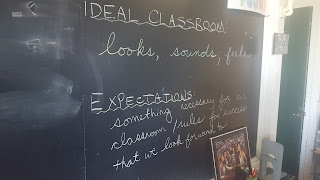 IDEAL CLASSROOM:
looks, sounds, feels
EXPECTATIONS:
something necessary for our
classroom/rules for success
that we look forward to